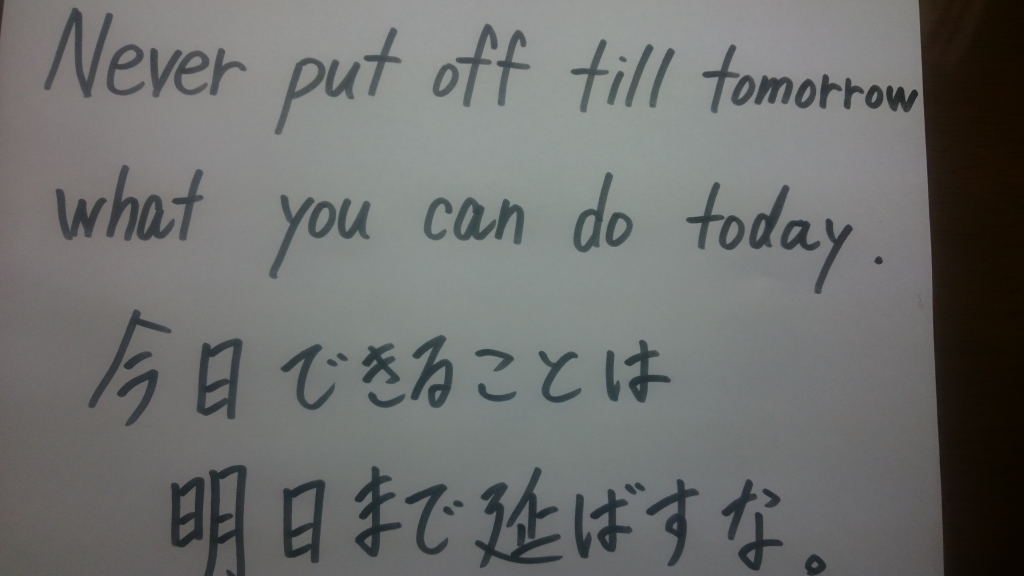 Never put off till tomorrow
what you can do today.
今日できることは
明日まで延ばすな。